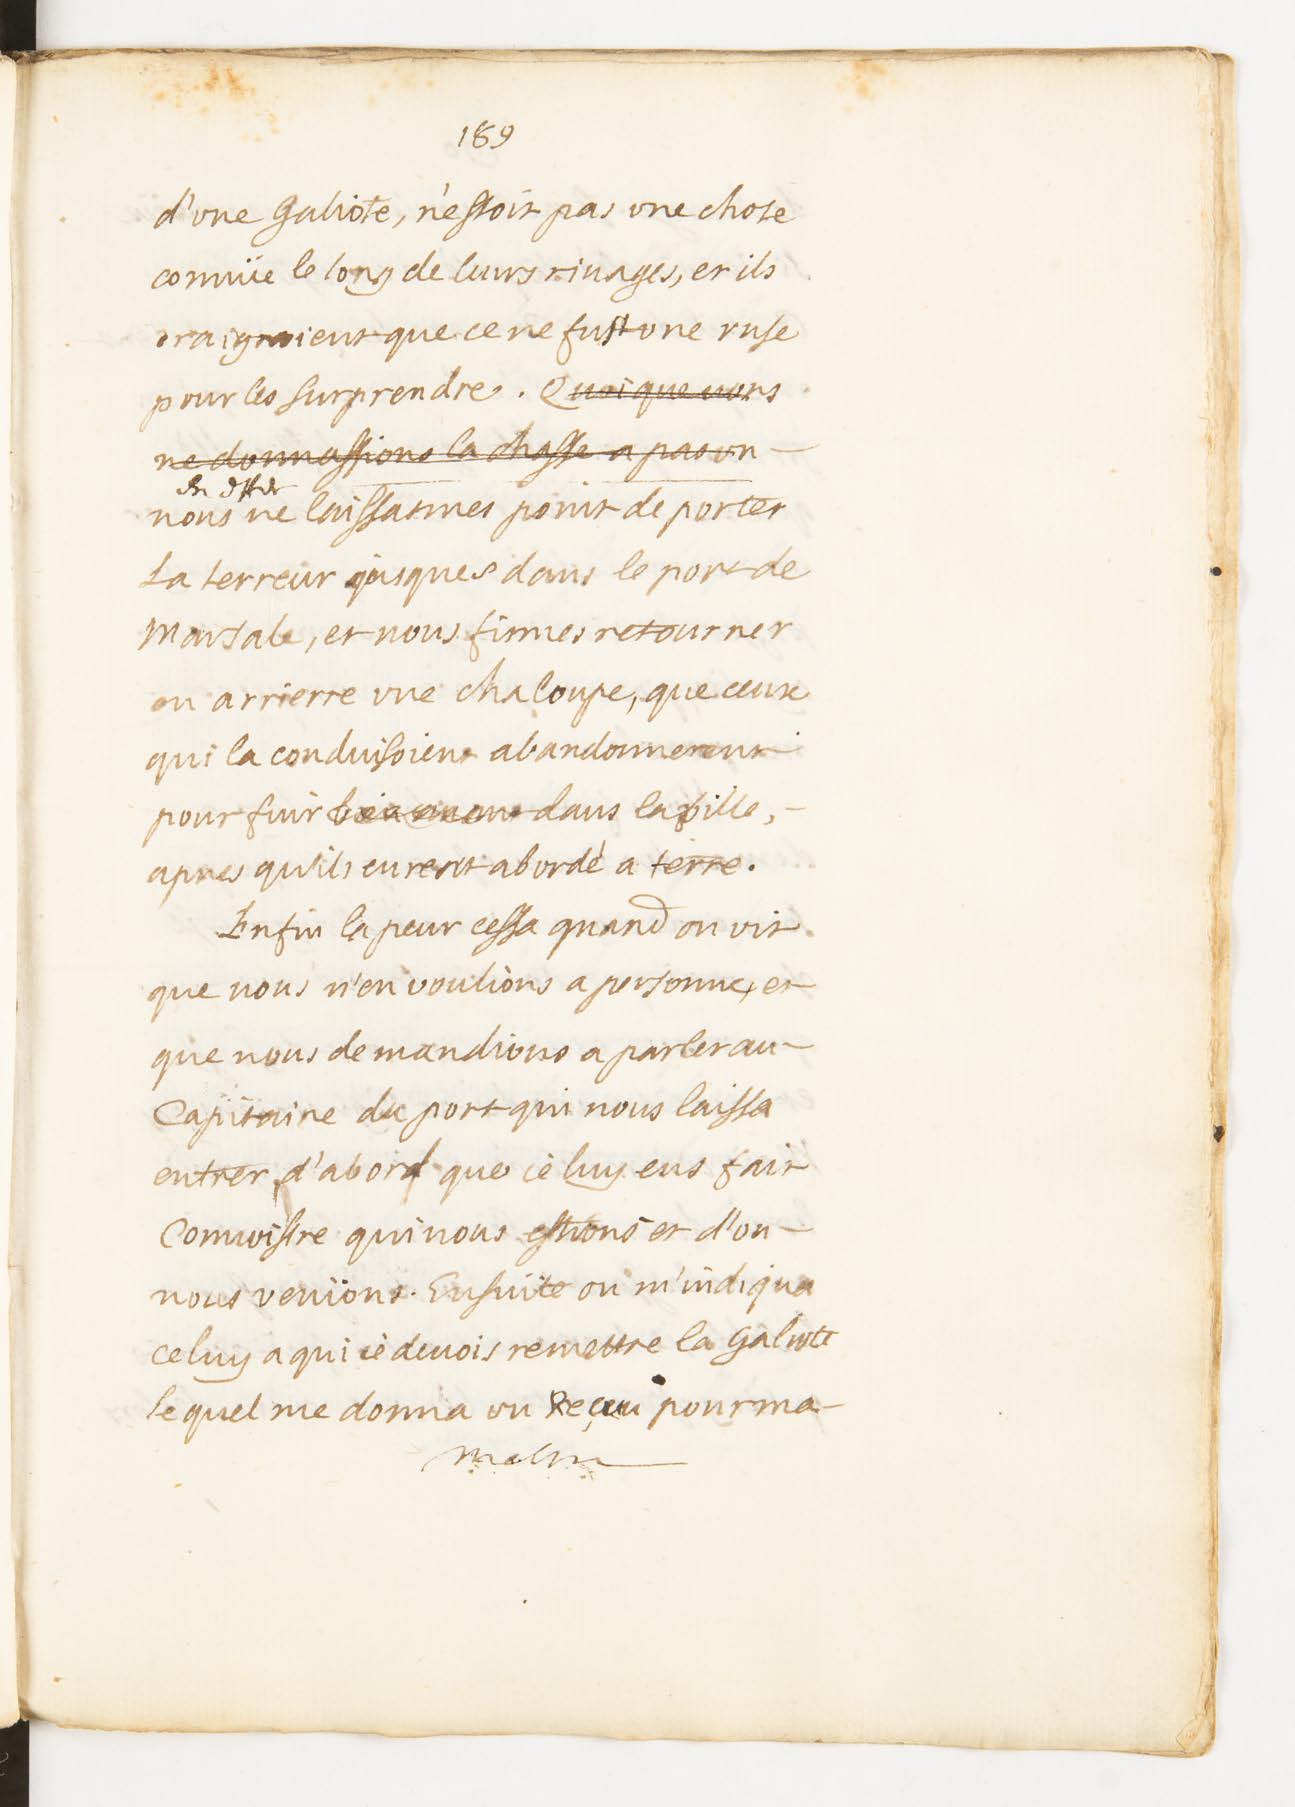 189
d'vne Galiote, n'estoit pas vne chose
connüe le long de leurs riuages, et ils
craignoient que ce ne fust vne ruse
pour les surprendre. Quoique nous
ne donnassions la chasse a pas vn
en effet
nous ne laissasmes point de porter
La terreur jusques dans le port de
Marsale, et nous fismes retourner
en arriere vne chaloupe, que ceux
qui la conduisoient abandonnerent
pour fuir dans la ville,
apres qu'ils eurent abordé a terre.
Enfin la peur cessa quand on vit
que nous n'en voulions a personne, et
que nous demandions a parler au
Capitaine du port qui nous laissa
entrer d'abord que ie luy eus fait
Connoistre qui nous estions et d'ou
nous venions. Ensuite on m'indiqua
celuy a qui ie deuois remettre la Galiote
lequel me donna vn Reçeu pour ma